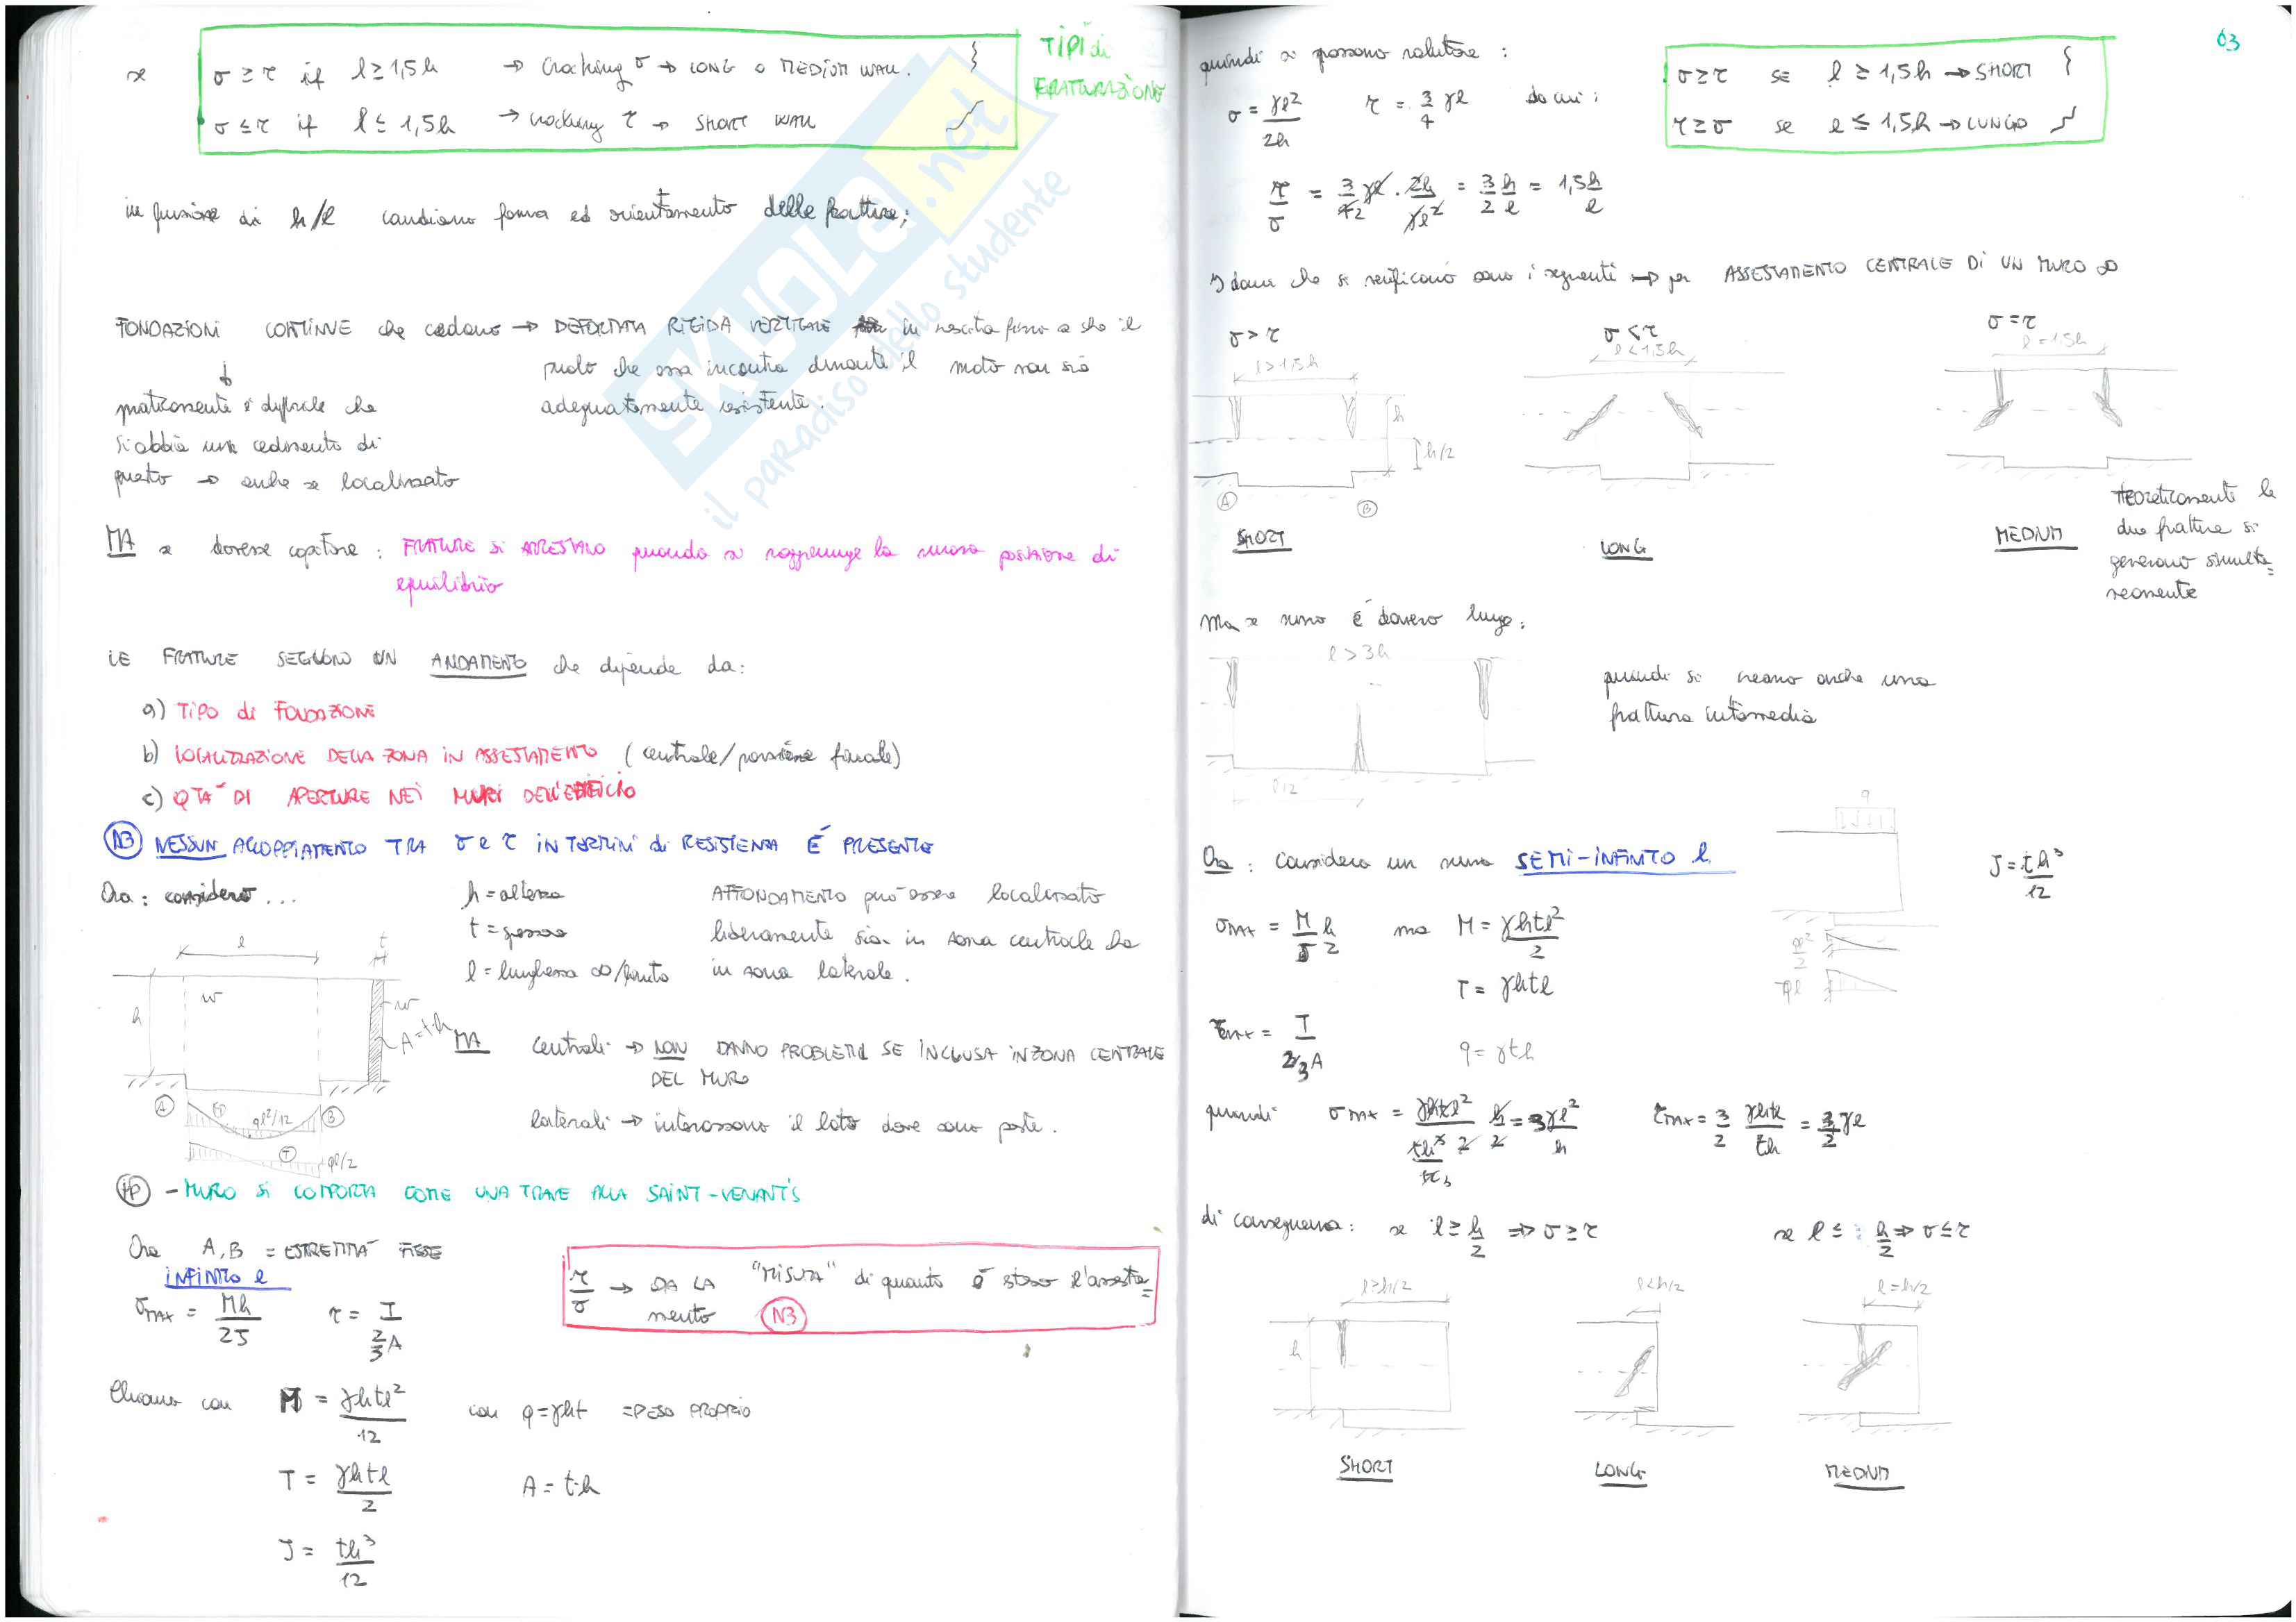 se σ ≥ τ if l ≥ 1,5h → Cracking σ → LONG o MEDIUM WALL.
σ ≤ τ if l ≤ 1,5h → cracking τ → SHORT WALL
TIPI di
FRATTURAZIONE
in funzione di h/l cambiano forma ed orientamento delle fratture;
FONDAZIONI CONTINUE che cedono → DEFORMATA RIGIDA VERTICALE in crescita fino a che il
suolo che essa incontra durante il moto non sia
adeguatamente resistente.
↓
praticamente è difficile che
si abbia un cedimento di
questo → anche se localizzato
MA se dovesse capitare: FRATTURE SI ARRESTANO quando si raggiunge la nuova posizione di
equilibrio
LE FRATTURE SEGUONO UN ANDAMENTO che dipende da:
a) TIPO di FONDAZIONE
b) LOCALIZZAZIONE DELLA ZONA IN ASSESTAMENTO (centrale/porzione finale)
c) QTA' DI APERTURE NEI MURI DELL'EDIFICIO
NB NESSUN ACCOPPIAMENTO TRA σ e τ IN TERMINI di RESISTENZA È PRESENTE
Ora: considero ...
h = altezza
t = spessore
l = lunghezza ∞/finito
AFFONDAMENTO può essere localizzato
liberamente sia in zona centrale che
in zona laterale.
l
t
h
w
w
A=t·h
A
B
ql²/12
T
ql/2
MA centrali → NON DANNO PROBLEMI SE INCLUSA IN ZONA CENTRALE
DEL MURO
laterali → interessano il lato dove sono poste.
HP - MURO SI COMPORTA COME UNA TRAVE ALLA SAINT-VENANT'S
Ora A,B = ESTREMITÀ FISSE
INFINITO l
σmax = Mh/2J τ = T/(2/3 A)
τ/σ → DÀ LA "MISURA" di quanto è steso l'assesta=
mento NB
Chiamo con M = γhtl²/12 con q=γht = PESO PROPRIO
T = γhtl/2 A = t·h
J = th³/12
63
quindi si possono valutare:
σ = γl²/2h τ = 3/4 γl da cui:
σ ≥ τ se l ≥ 1,5h → SHORT
τ ≥ σ se l ≤ 1,5h → LUNGO
τ/σ = 3/4 γl · 2h/γl² = 3/2 h/l = 1,5 h/l
I danni che si verificano sono i seguenti → per ASSESTAMENTO CENTRALE DI UN MURO ∞
σ > τ
l > 1,5h
h
h/2
A
B
SHORT
σ < τ
l < 1,5h
LONG
σ = τ
l = 1,5h
MEDIUM
TEORETICAMENTE le
due fratture si
generano simulta=
neamente
Ma se muro è davvero lungo:
l > 3h
l/2
quindi si creano anche una
frattura intermedia
Ora: considero un muro SEMI-INFINITO l
q
J = th³/12
ql²/2
ql
σmax = M/J h/2 ma M = γhtl²/2
T = γhtl
τmax = T/(2/3 A) q = γth
quindi σmax = γhtl²/(th³/12 · 2) h/2 = 3γl²/h τmax = 3/2 γhtl/th = 3/2 γl
di conseguenza: se l ≥ h/2 ⇒ σ ≥ τ se l ≤ h/2 ⇒ σ ≤ τ
l>h/2
h
SHORT
l<h/2
LONG
l=h/2
MEDIUM
SKUOLA.net
il paradiso dello studente